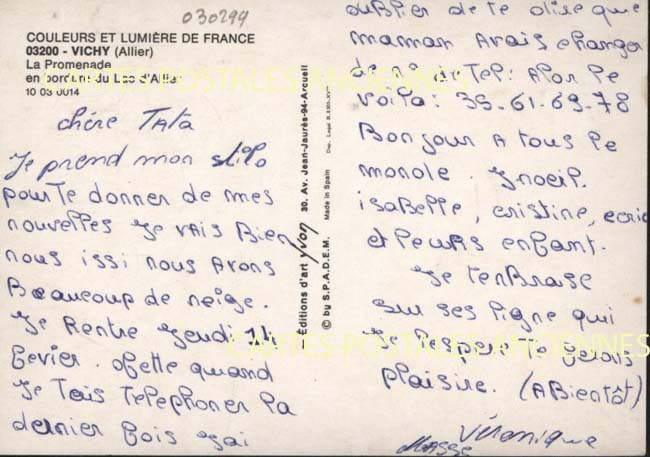 030299
COULEURS ET LUMIÈRE DE FRANCE
03200 - VICHY (Allier)
La Promenade
en bordure du Lac d'Allier
10 03 0014
chére TATA
Je prend mon stilo
pour Te donner de mes
nouvelles Je vais Bien
nous issi nous Avons
Beaucoup de neige.
Je Rentre Jeudi 11
fevier. obette quand
Je Tais Telephoner la
dernier fois Jai
Editions d'art yvon 30. Av. Jean-Jaurès-94-Arcueil
© by S.P.A.D.E.M. Made in Spain
oublier de te dire que
maman Avais changer
de né de Tel: Alor le
voila: 39.61.69.78
Bonjour A tous le
monde. Jnoeil.
isabelle, cristine, ecric
et leurs enfant.
Je tenbrase
sur ses ligne qui
Jespere te ferons
plaisire. (A Bientôt)
Véronique
Masse
CARTES POSTALES ANCIENNES
CARTES POSTALES ANCIENNES